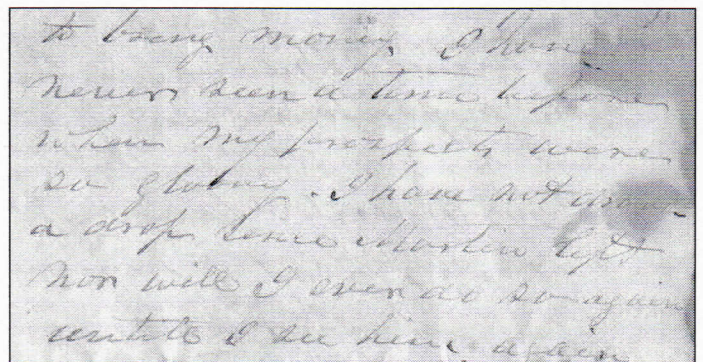 to bring money. I have
never seen a time before
when my prospects were
so gloomy. I have not drunk
a drop since Martin left
nor will I ever do so again
until I see him again